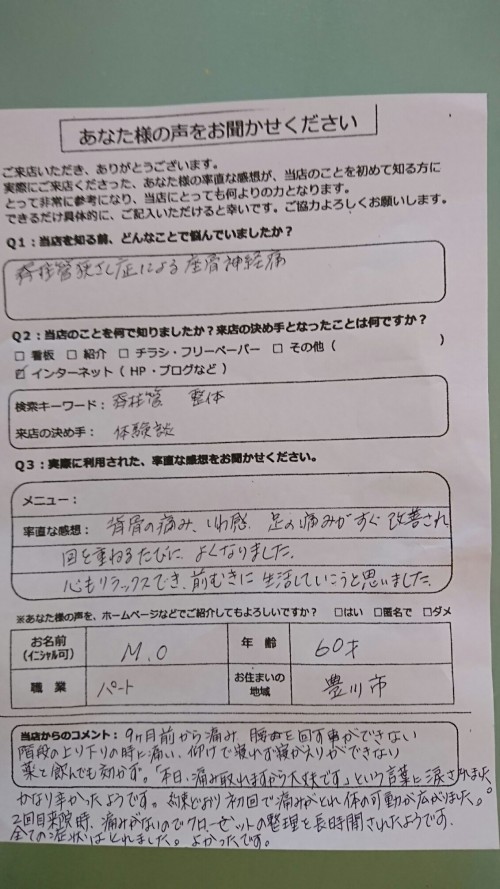 あなた様の声をお聞かせください
ご来店いただき、ありがとうございます。
実際にご来店くださった、あなた様の率直な感想が、当店のことを初めて知る方に
とって非常に参考になり、当店にとっても何よりの力となります。
できるだけ具体的に、ご記入いただけると幸いです。ご協力よろしくお願いします。
Q1：当店を知る前、どんなことで悩んでいましたか？
脊柱管狭さく症による座骨神経痛
Q2：当店のことを何で知りましたか？来店の決め手となったことは何ですか？
□ 看板 □ 紹介 □ チラシ・フリーペーパー □ その他（ ）
☑ インターネット（ HP・ブログなど ）
検索キーワード： 脊柱管 整体
来店の決め手： 体験談
Q3：実際に利用された、率直な感想をお聞かせください。
メニュー：
率直な感想： 背骨の痛み、いわ感、足の痛みがすぐ改善され
回を重ねるたびに、よくなりました。
心もリラックスでき、前むきに生活していこうと思いました。
※あなた様の声を、ホームページなどでご紹介してもよろしいですか？ □はい □匿名で □ダメ
お名前（イニシャル可） M.O 年 齢 60才
職 業 パート お住まいの地域 豊川市
当店からのコメント： 9ヶ月前から痛み 腰を回す事ができない
階段の上り下りの時に痛い、仰けで寝れず寝がえりができない
薬を飲んでも効かず。「本日、痛み取れますから大丈夫です」という言葉に涙されました。
かなり辛かったようです。約束どおり初回で痛みがとれ、体の可動が広がりました。
2回目来院時、痛みがないのでクローゼットの整理を長時間されたようです、
全ての症状はとれました。よかったです。